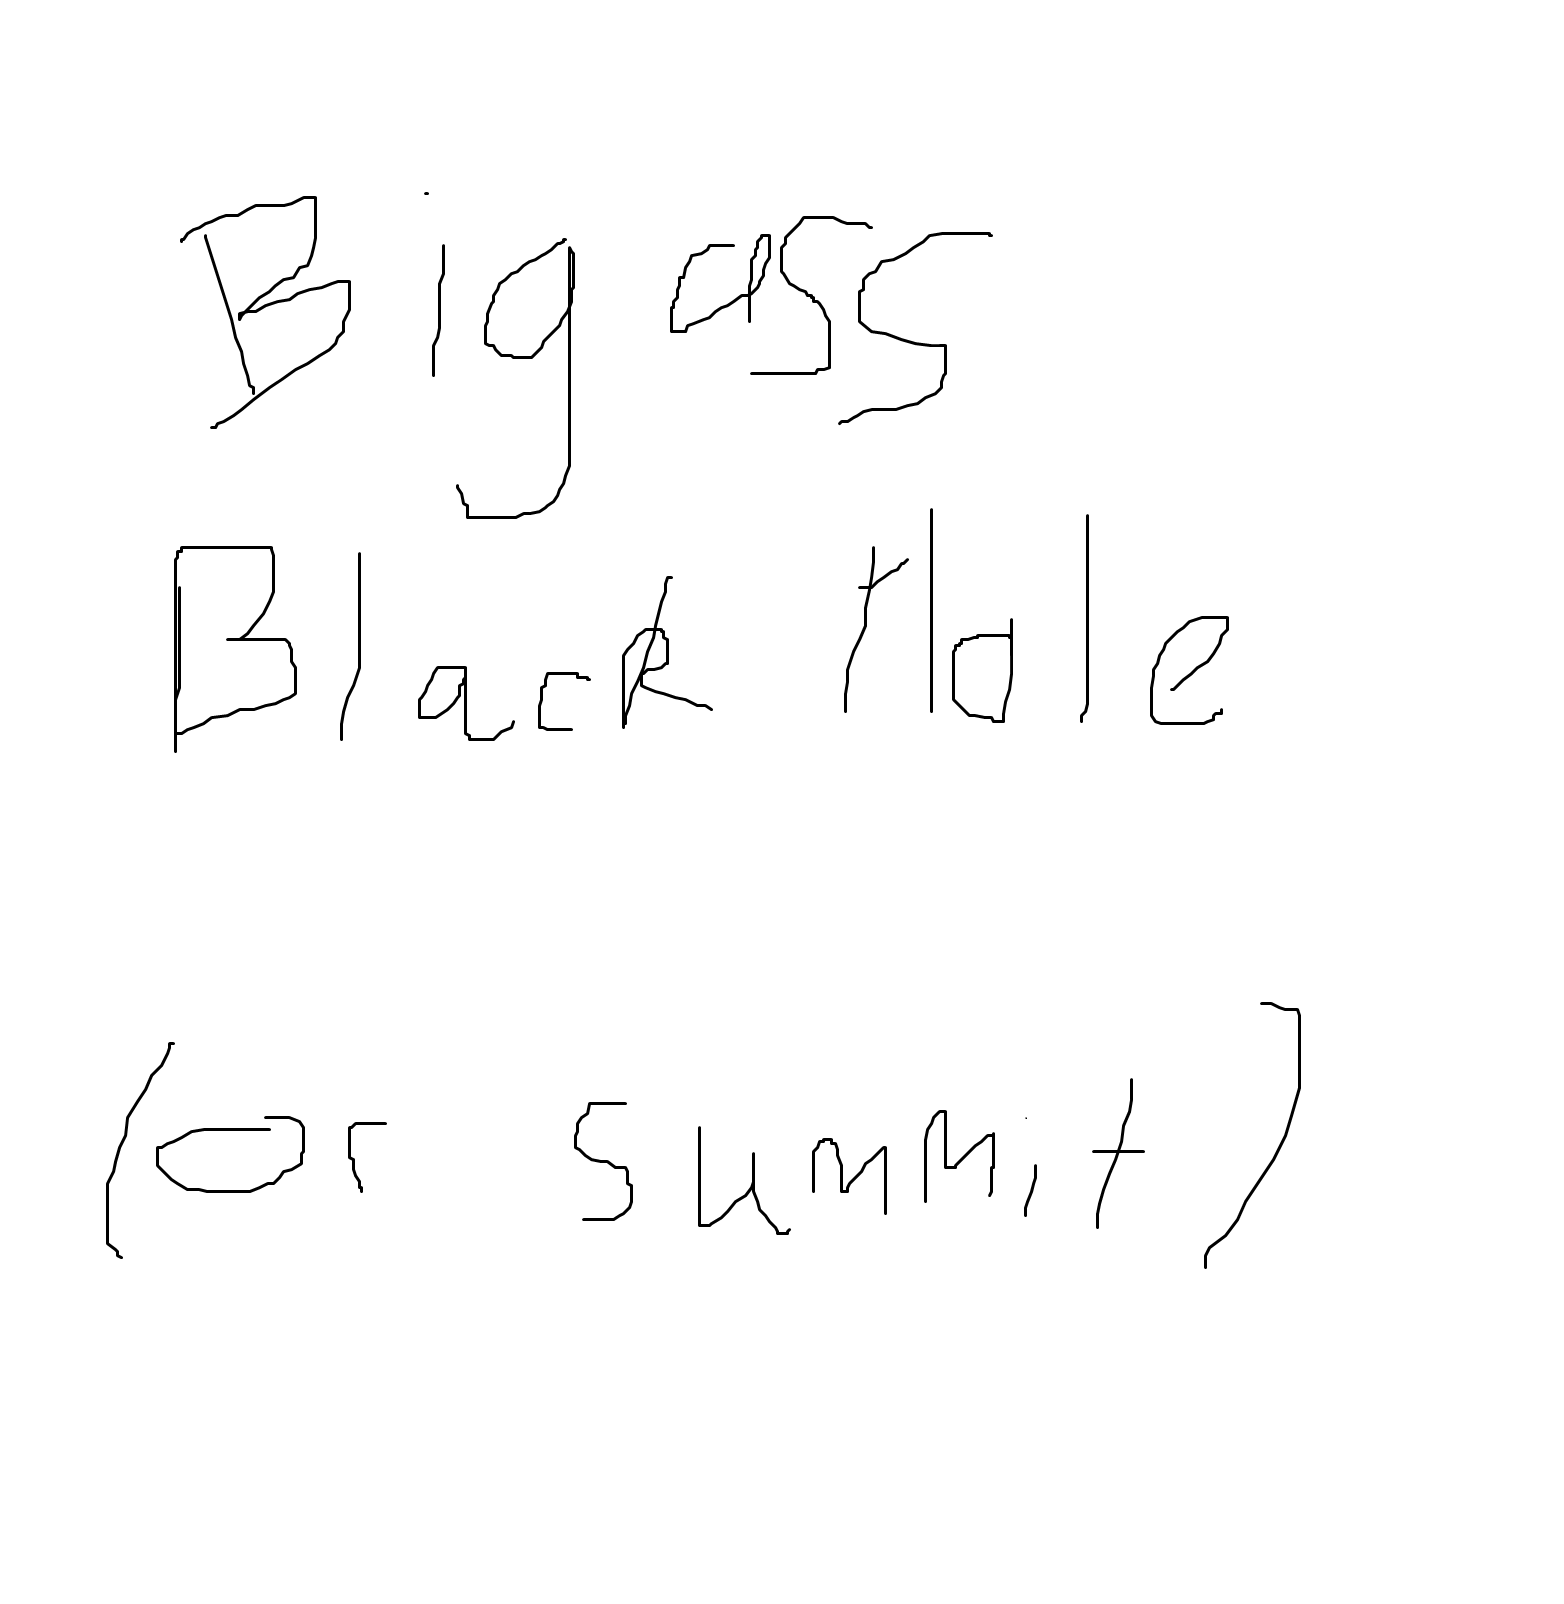 Big ass
Black Hole
(or summit)